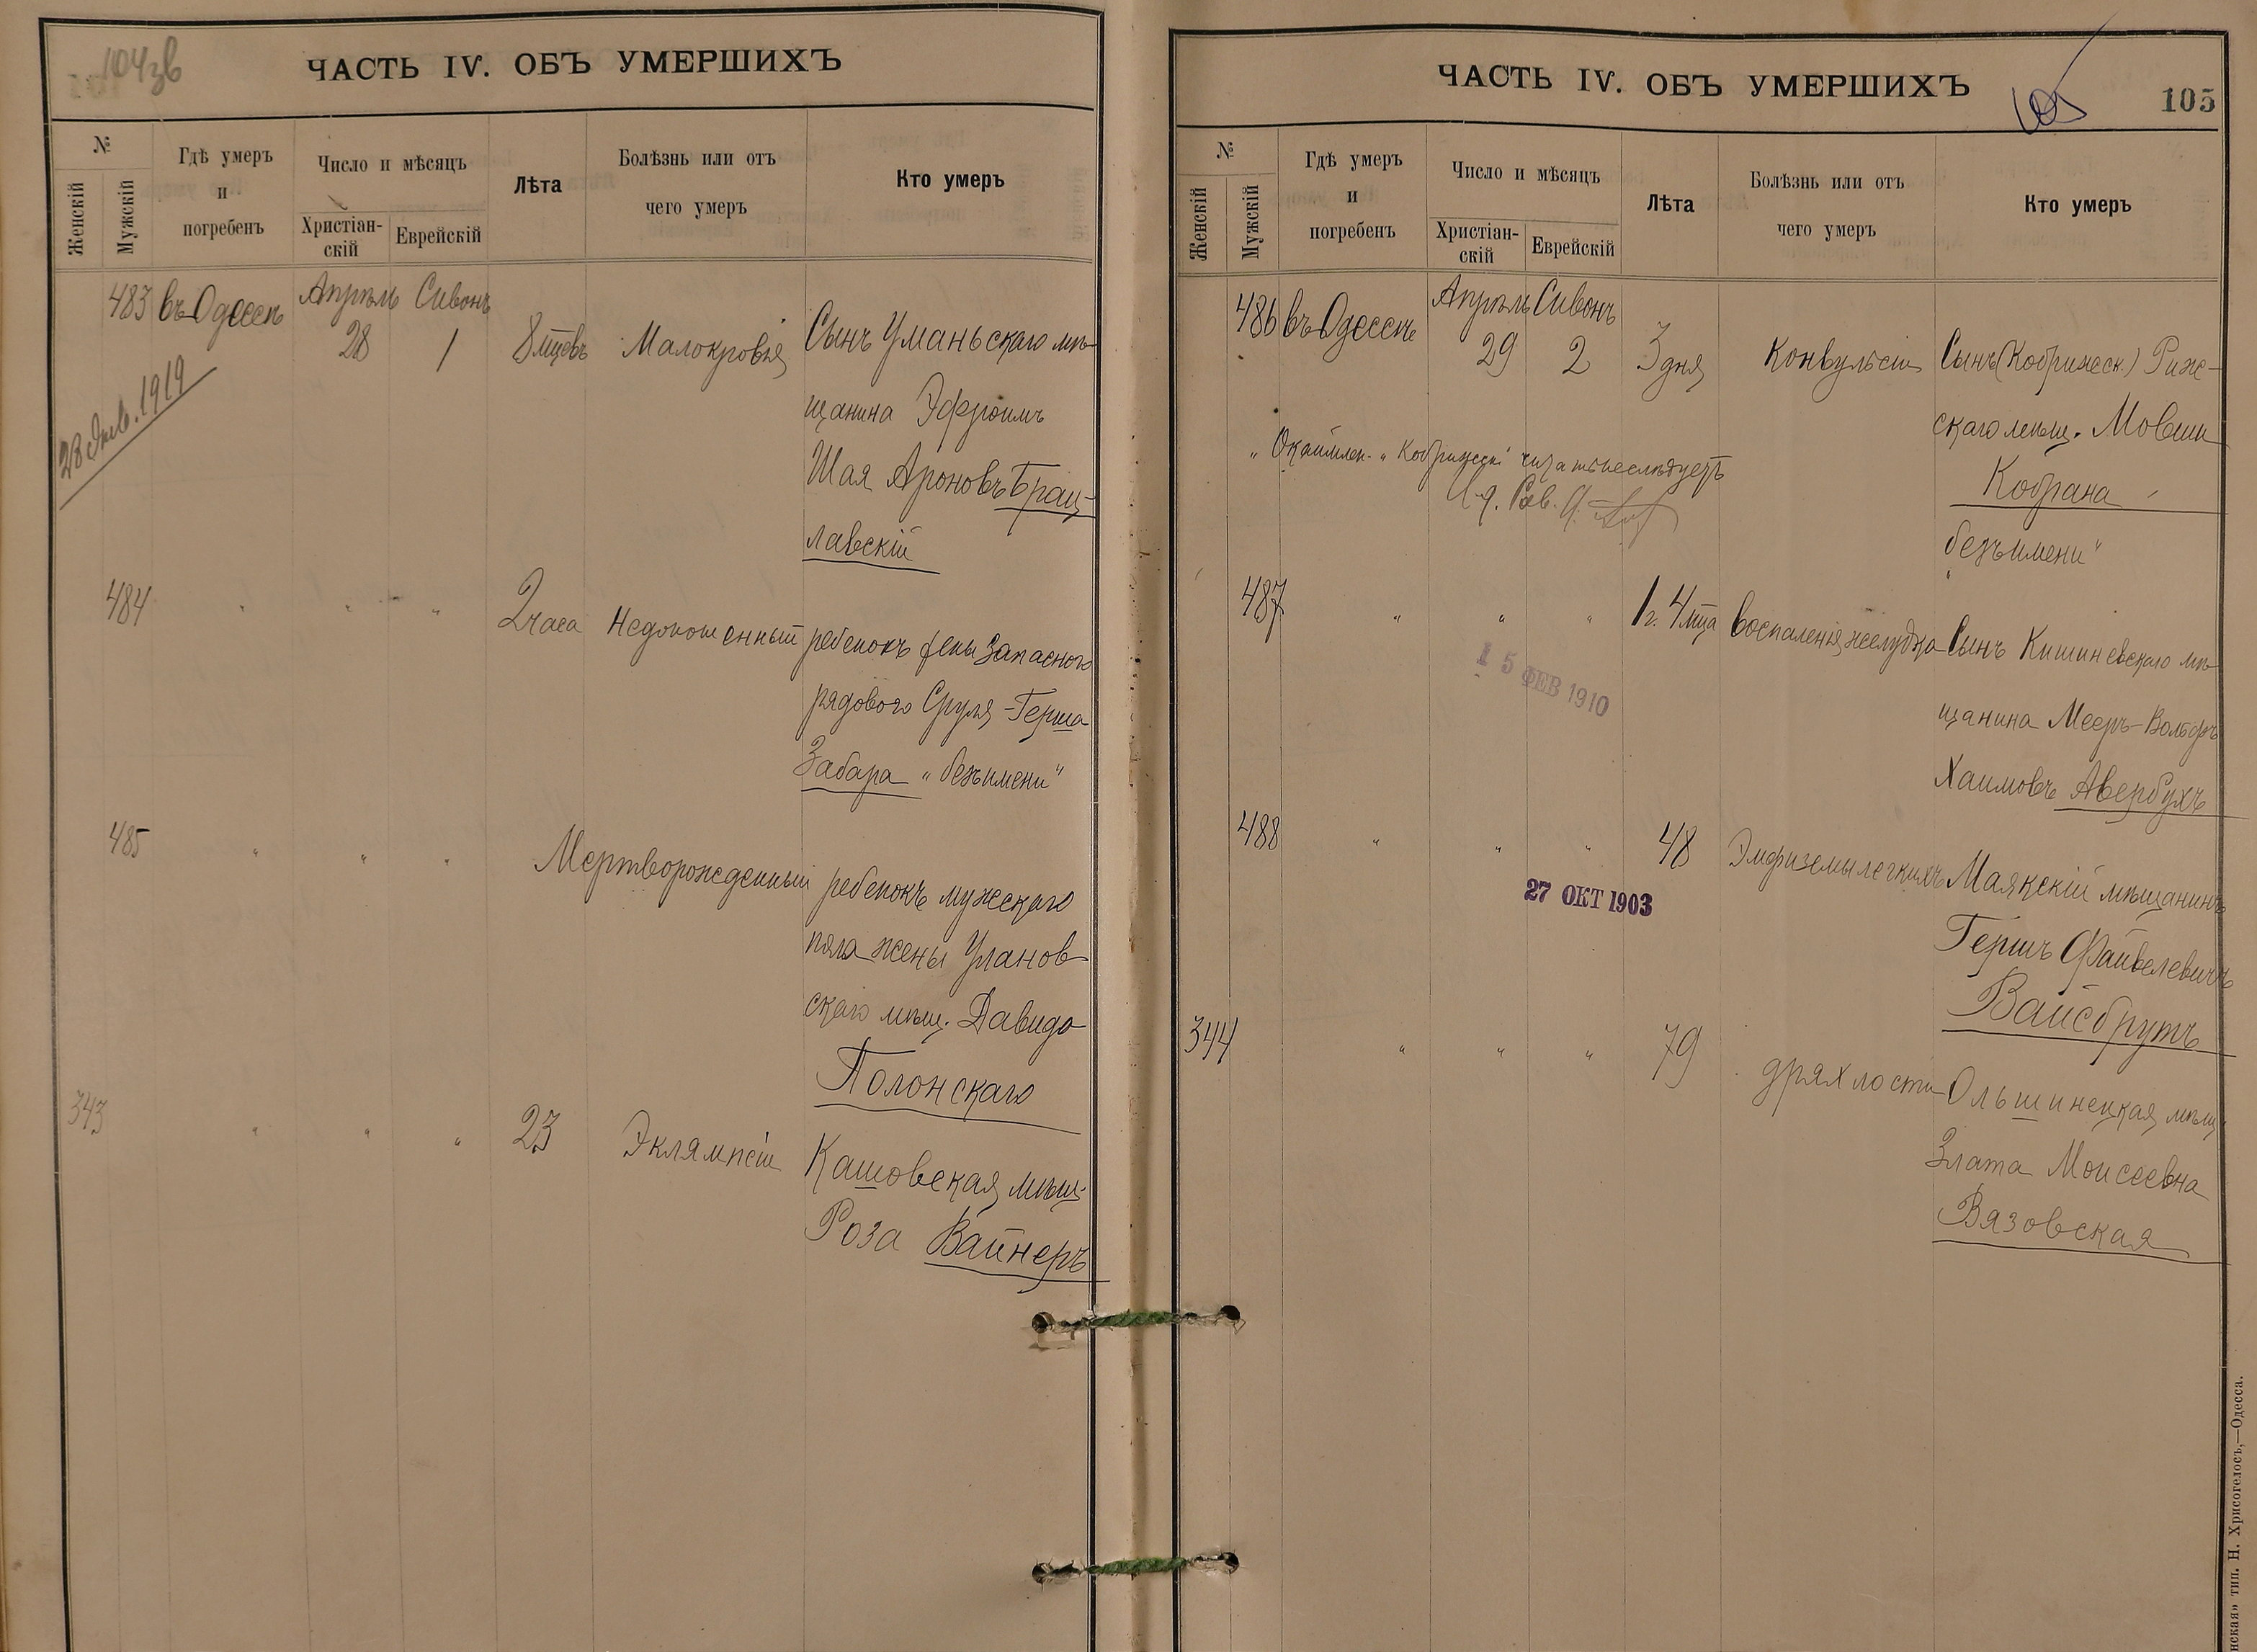 104 зв
ЧАСТЬ IV. ОБЪ УМЕРШИХЪ
№
Женскій
Мужскій
Гдѣ умеръ
и
погребенъ
Число и мѣсяцъ
Христіан-
скій
Еврейскій
Лѣта
Болѣзнь или отъ
чего умеръ
Кто умеръ
483 въ Одессѣ Апрѣль Сивонъ
28 1 8 мцевъ Малокровія Сынъ Уманьскаго мѣ-
щанина Эфроимъ
Шая Ароновъ Брац-
лавскій
28 Янв. 1919
484 " " " 2 часа Недоношенный ребенокъ жены Запасного
рядового Сруля-Герша
Забара „безъ имени"
485 " " " Мертворожденный ребенокъ мужескаго
пола жены Уланов-
скаго мѣщ. Давида
Полонскаго
343 " " " 23 Эклямпсіи Кашовская мѣщ.
Роза Вайнеръ
ЧАСТЬ IV. ОБЪ УМЕРШИХЪ
105
105
№
Женскій
Мужскій
Гдѣ умеръ
и
погребенъ
Число и мѣсяцъ
Христіан-
скій
Еврейскій
Лѣта
Болѣзнь или отъ
чего умеръ
Кто умеръ
486 въ Одессѣ Апрѣль Сивонъ
29 2 3 дня Конвульсіи Сынъ (Кобринск.) Риж-
скаго мѣщ. Мовши
Кобрана
безъ имени"
"
487 " " " 1 г. 4 мца воспаленія желудка Сынъ Кишиневскаго мѣ-
щанина Мееръ-Вольфъ
Хаимовъ Авербухъ
15 ФЕВ 1910
488 " " " 48 Эмфиземы легкихъ Маякскій мѣщанинъ
Гершъ Файвелевичъ
Вайсбрутъ
27 ОКТ 1903
344 " " " 79 дряхлости Ольшинецкая мѣщ.
Злата Моисеевна
Вязовская
тип. Н. Хрисогелосъ,—Одесса.